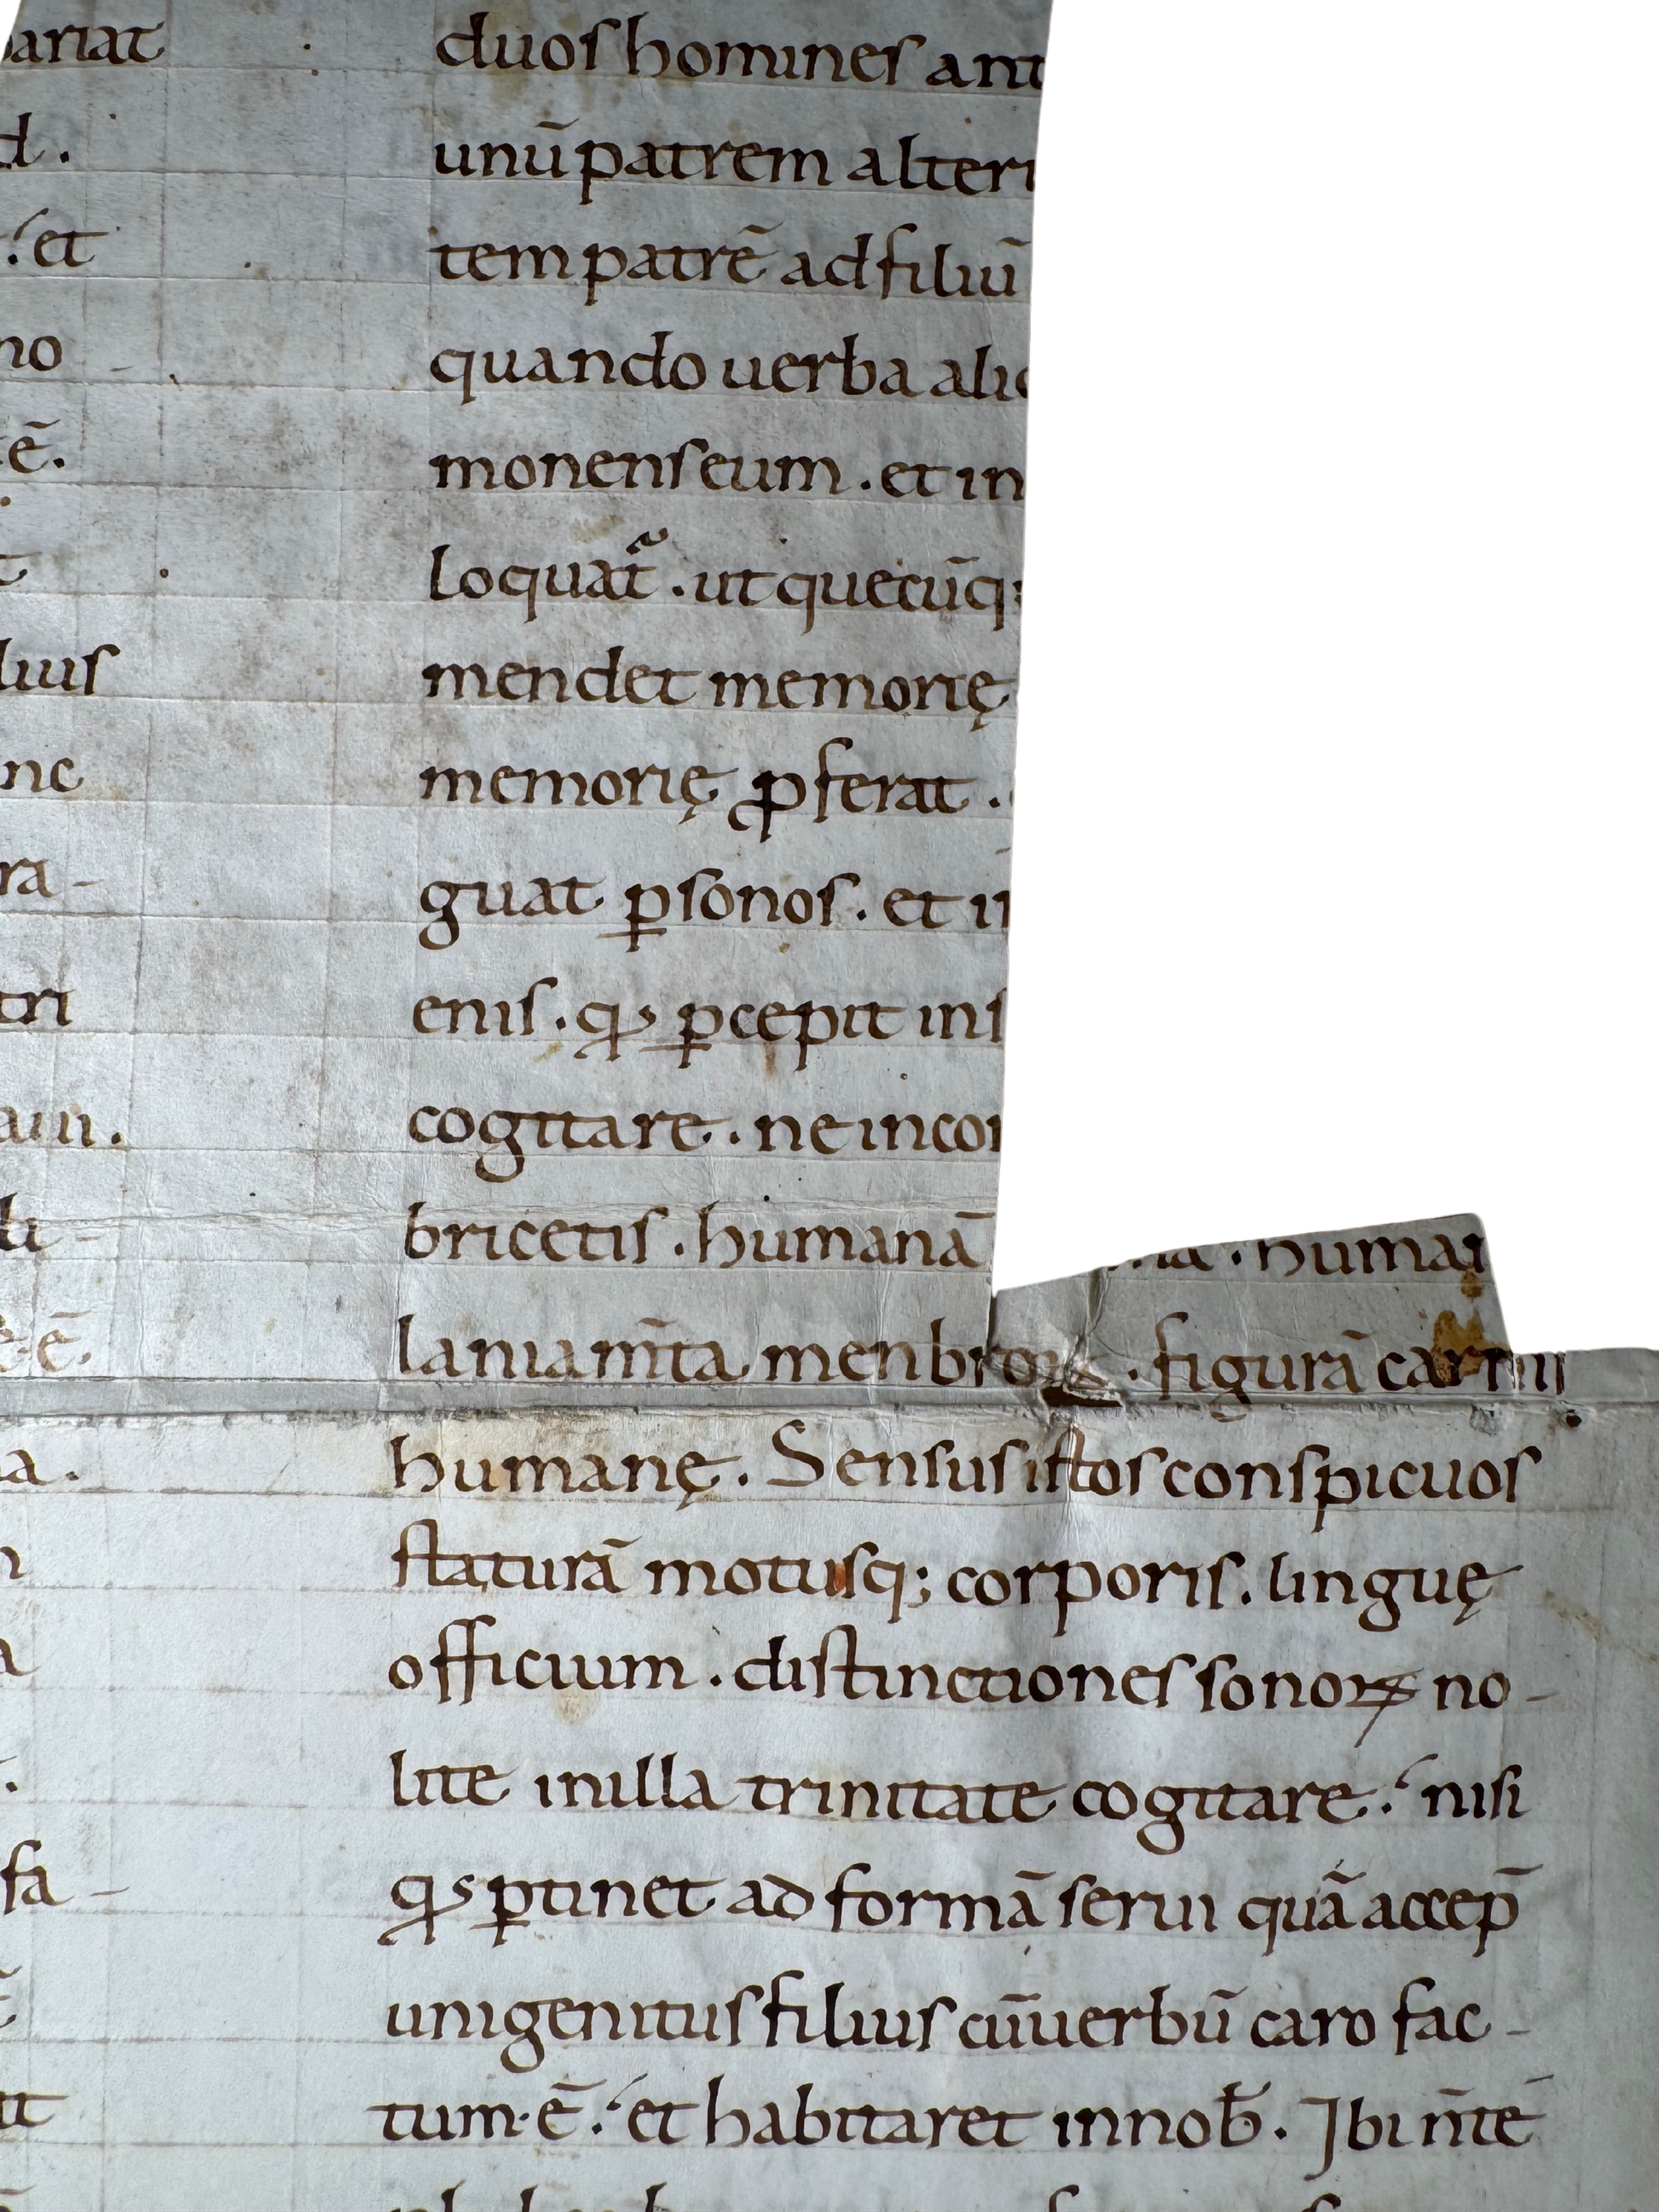 ariat
d.
et
no
ē.
lius
nc
ra-
tri
am.
li-
ē
a.
a
fa-
it
duos homines ant
unū patrem alteri
tem patrē ad filiū
quando uerba alic
monens eum . et in
loquat᷑ . ut quecūq;
mendet memorię
memorię ꝓferat .
guat ꝑsonos . et in
enis . qđ ꝑcepit ins
cogitare . ne incor
bricetis . humanā human
laniam̄ta menbroꝝ . figurā carni
humanę . Sensus istos conspicuos
staturā motusq; corporis . linguę
officium . distinctiones sonoꝝ no-
lite in illa trinitate cogitare . nisi
qđ ꝑtinet ad formā serui quā accep̄
unigenitus filius cū uerbū caro fac-
tum . ē . et habitaret in nob̄ . Ibi n̄ te